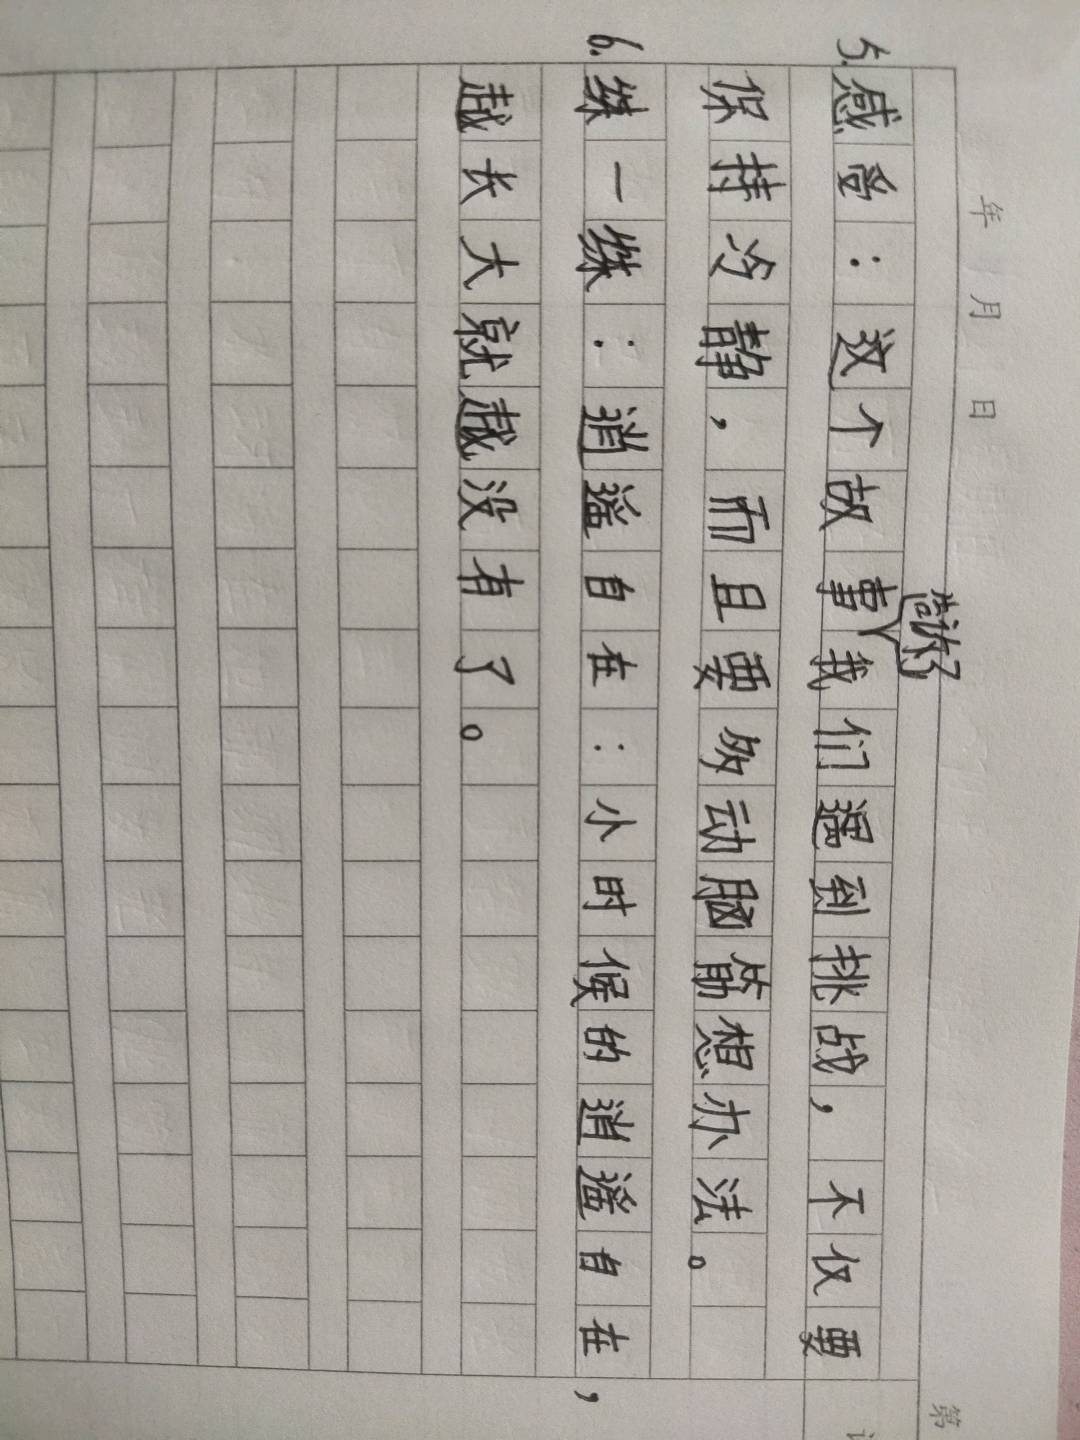 年 月 日
5.感受：这个故事告诉我们遇到挑战，不仅要
保持冷静，而且要多动脑筋想办法。
6.练一练：逍遥自在：小时候的逍遥自在，
越长大就越没有了。
第